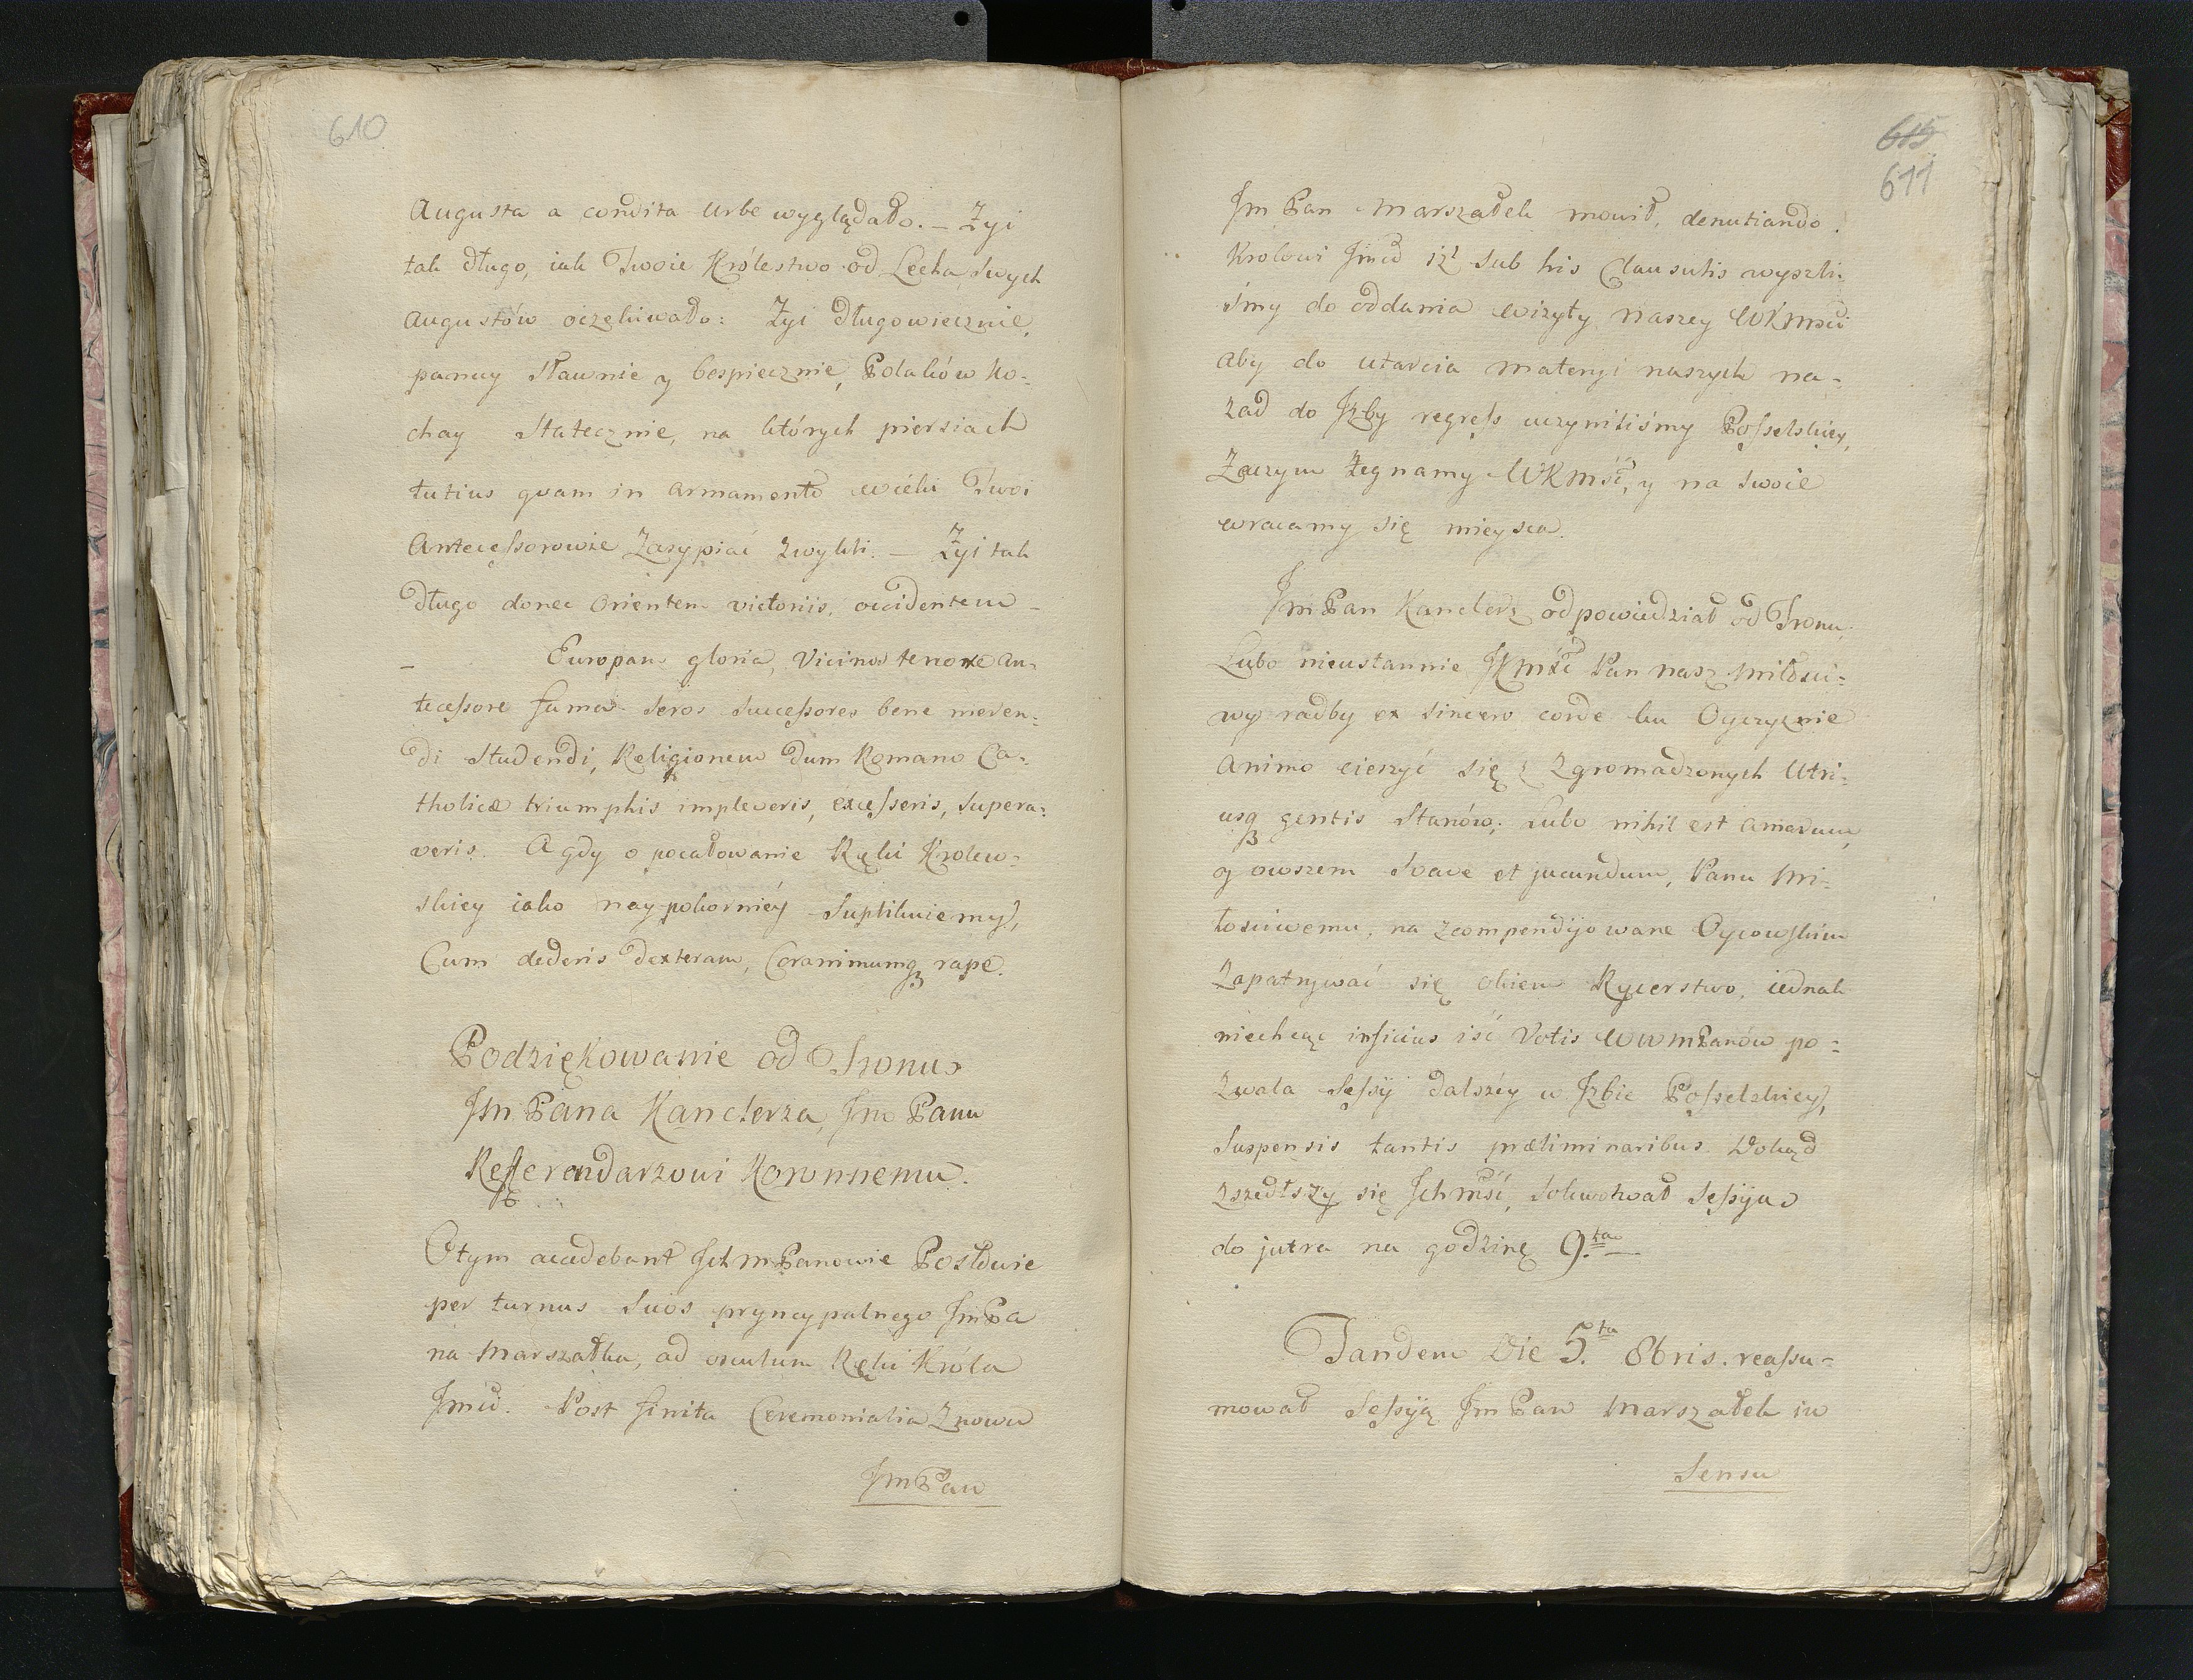 610
Augusta a condita Urbe wyglądało. – Żyi
tak długo, iak Twoie Królestwo od Lecha swych
Augustów oczekiwało: Żyi długowiecznie,
panuy sławnie y bespiecznie, Polaków ko-
chay statecznie, na których piersiach
tutius quam in armamento wieki Twoi
Antecessorowie Zasypiać zwykli. – Żyi tak
długo donec Orientem victoriis, occidentem –
– Europam gloria, Vicinos terrore an-
tecessore fama seros successores bene meren-
di studendi, Religionem dum Romano Ca-
tholicæ triumphis impleveris, excesseris, supera-
veris. A gdy o pocałowanie Ręki Krolew-
skiey iako naypokorniéy suplikuiemy,
Cum dederis dexteram, Coranimumq rape.
Podziękowanie od Tronu
Jm Pana Kanclerza, Jm Panu
Refferendarzowi Koronnemu.
Otym accedebant Ich m Panowie Posłowie
per turnus suos pryncypalnego Jm Pa
na Marszałka, ad osculum Ręki Króla
Jmci. Post finita Ceremonialia Znowu
Jm Pan
615
611
Jm Pan Marszałek mowił, denutiando
Krolowi Jmci iż sub his Clausulis wyszli-
śmy do oddania wizyty naszey WKmci
aby do utarcia materyi naszych na-
zad do Jzby regress uczyniliśmy Posselskiey,
Zaczym Żegnamy WKmść, y na swoie
wracamy się mieysca.
Jm Pan Kanclerz odpowiedział od Tronu.
Lubo nieustannie JKmść Pan nasz miłości-
wy radby ex sincero corde ku Oyczyznie
animo cieszyć się z Zgromadzonych Utri-
usq gentis Stanów, Lubo nihil est amarum,
y owszem svave et jucundum, Panu Mi-
łościwemu, na zcompendijowane Oycowskim
Zapatrywać się okiem Rycerstwo, iednak
niechcąc inficius iść Votis WWmPanów po-
zwala Sessÿ dalszéy w Jzbie Posselskiey,
suspensis tantis præliminaribus. Dokąd
zszedłszy się Ichmść, solwował Sessyjų
do jutra na godzinę 9.ta –
Tandem Die 5.ta 8bris. reassu-
mował Sessyją Jm Pan Marszałek in
Sensu